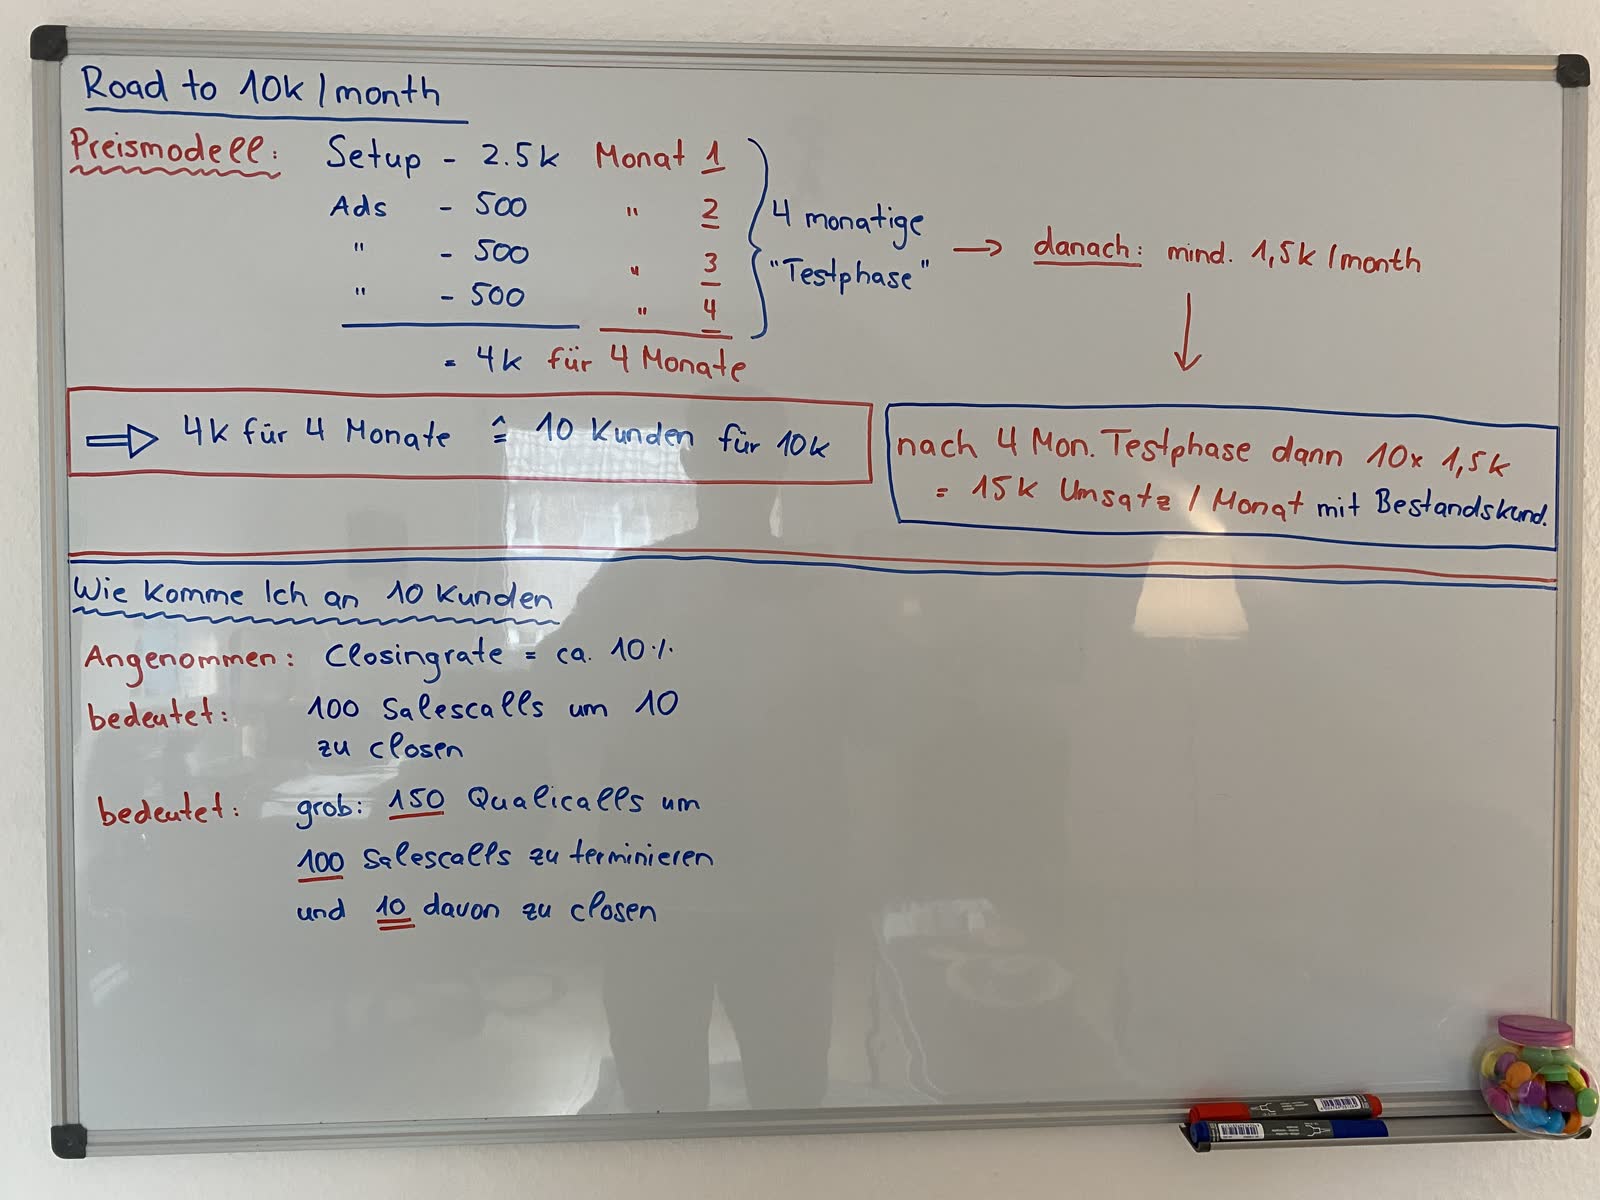 Road to 10k/month
Preismodell: Setup - 2.5k Monat 1
Ads - 500 " 2
" - 500 " 3
" - 500 " 4
4 monatige
"Testphase"
→ danach: mind. 1,5k/month
= 4k für 4 Monate
⇒ 4k für 4 Monate ≙ 10 Kunden für 10k
nach 4 Mon. Testphase dann 10x 1,5k
= 15k Umsatz / Monat mit Bestandskund.
Wie komme Ich an 10 Kunden
Angenommen: Closingrate = ca. 10%
bedeutet: 100 Salescalls um 10
zu closen
bedeutet: grob: 150 Qualicalls um
100 Salescalls zu terminieren
und 10 davon zu closen